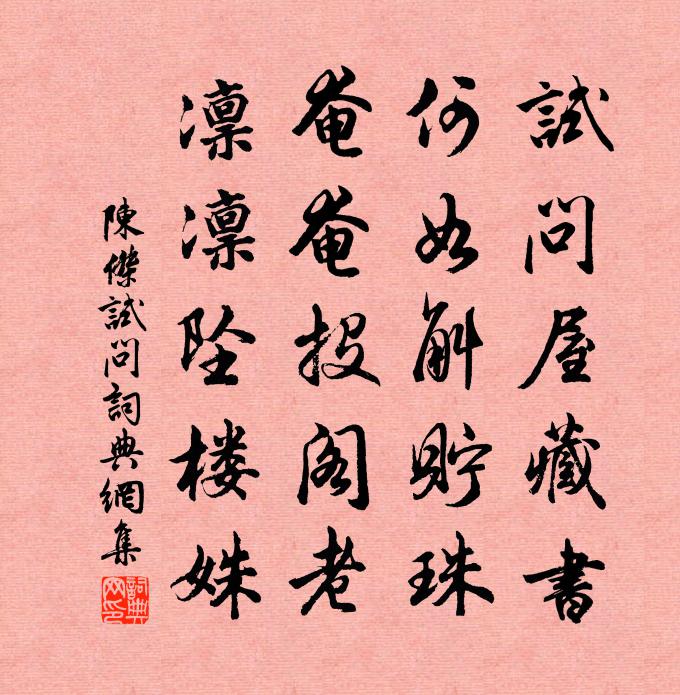 試問屋藏書
何如斛貯珠
奄奄投阁老
凛凛坠楼姝
陳傑試問詞典網集
詞典网印